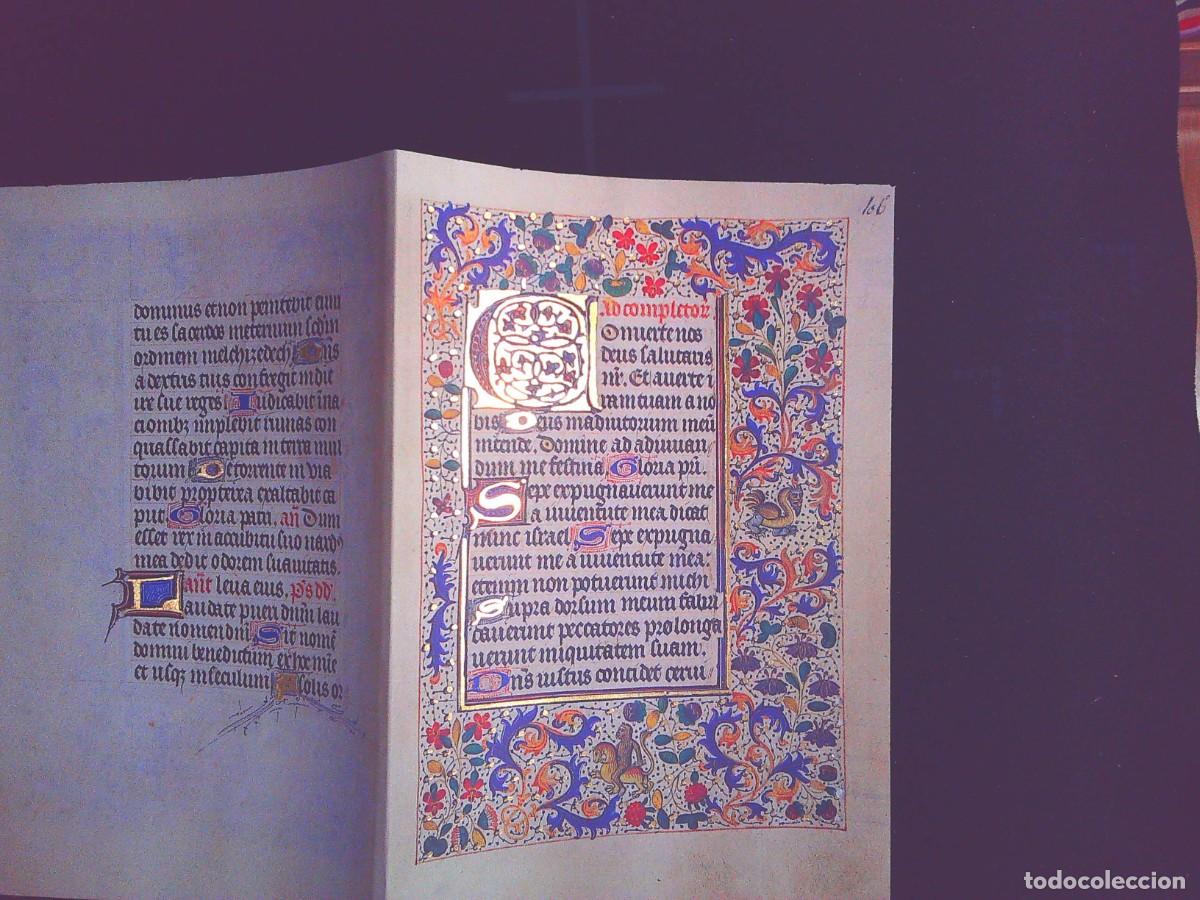 dominus et non penitebit eum
tu es sacerdos meternum scdm
ordinem melchizedech Dns
a dextris tuis confregit in die
ire sue reges Iudicabit in na
cionibz implebit ruinas con
quassabit capita in terra mul
torum De torrente in via
bibit propterea exaltabit ca
put Gloria patri. añ Dum
esset rex in accubitu suo nard
mea dedit odorem suauitatis.
Leua eius. ps dd.
Laudate pueri dnm lau
date nomen dni Sit nome
domini benedictum ex hoc
et usqz in seculum A solis or
106
Ad completor
Conuerte nos
deus salutaris
nr. Et auerte i
ram tuam a no
bis Deus in adiutorium meu
intende. Domine ad adiuuan
dum me festina. Gloria pri.
Sepe expugnauerunt me
a iuuentute mea dicat
nunc israel Sepe expugna
uerunt me a iuuentute mea
etenim non potuerunt michi
Supra dorsum meum fabri
cauerunt peccatores prolonga
uerunt iniquitatem suam
Dns iustus concidet ceruic
todocoleccion